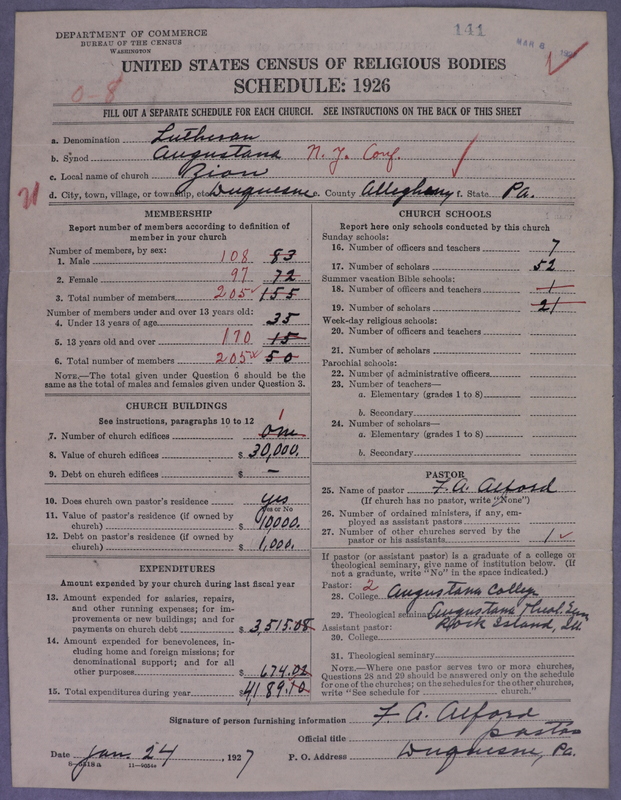 DEPARTMENT OF COMMERCE
BUREAU OF THE CENSUS
WASHINGTON
141
MAR 6
UNITED STATES CENSUS OF RELIGIOUS BODIES
SCHEDULE: 1926
0-8
FILL OUT A SEPARATE SCHEDULE FOR EACH CHURCH. SEE INSTRUCTIONS ON THE BACK OF THIS SHEET
a. Denomination Lutheran
b. Synod Augustana N. Y. Conf.
c. Local name of church Zion
d. City, town, village, or township, etc. Duquesne e. County Allegheny f. State Pa.
21
MEMBERSHIP
Report number of members according to definition of
member in your church
Number of members, by sex:
1. Male 108 83
2. Female 97 72
3. Total number of members 205 155
Number of members under and over 13 years old:
4. Under 13 years of age 35
5. 13 years old and over 170 15
6. Total number of members 205 50
NOTE.—The total given under Question 6 should be the
same as the total of males and females given under Question 3.
CHURCH BUILDINGS
See instructions, paragraphs 10 to 12
1
7. Number of church edifices one
8. Value of church edifices $ 30,000.
9. Debt on church edifices $ –
10. Does church own pastor's residence yes
Yes or No
11. Value of pastor's residence (if owned by
church) $ 10000.
12. Debt on pastor's residence (if owned by
church) $ 1,000.
EXPENDITURES
Amount expended by your church during last fiscal year
13. Amount expended for salaries, repairs,
and other running expenses; for im-
provements or new buildings; and for
payments on church debt $ 3,515.08
14. Amount expended for benevolences, in-
cluding home and foreign missions; for
denominational support; and for all
other purposes $ 674.02
15. Total expenditures during year $ 4,189.10
CHURCH SCHOOLS
Report here only schools conducted by this church
Sunday schools:
16. Number of officers and teachers 7
17. Number of scholars 52
Summer vacation Bible schools:
18. Number of officers and teachers 1
19. Number of scholars 21
Week-day religious schools:
20. Number of officers and teachers
21. Number of scholars
Parochial schools:
22. Number of administrative officers
23. Number of teachers—
a. Elementary (grades 1 to 8)
b. Secondary
24. Number of scholars—
a. Elementary (grades 1 to 8)
b. Secondary
PASTOR
25. Name of pastor F. A. Alford
(If church has no pastor, write "None")
26. Number of ordained ministers, if any, em-
ployed as assistant pastors
27. Number of other churches served by the
pastor or his assistants 1
If pastor (or assistant pastor) is a graduate of a college or
theological seminary, give name of institution below. (If
not a graduate, write "No" in the space indicated.)
Pastor: 2
28. College Augustana College
29. Theological seminary Augustana Theol. Sem
Assistant pastor: Rock Island, Ill
30. College
31. Theological seminary
NOTE.—Where one pastor serves two or more churches,
Questions 28 and 29 should be answered only on the schedule
for one of the churches; on the schedules for the other churches,
write "See schedule for church."
Signature of person furnishing information F. A. Alford
Official title pastor
Date Jan. 24, 1927 P. O. Address Duquesne, Pa.
8-5518a 11-9034